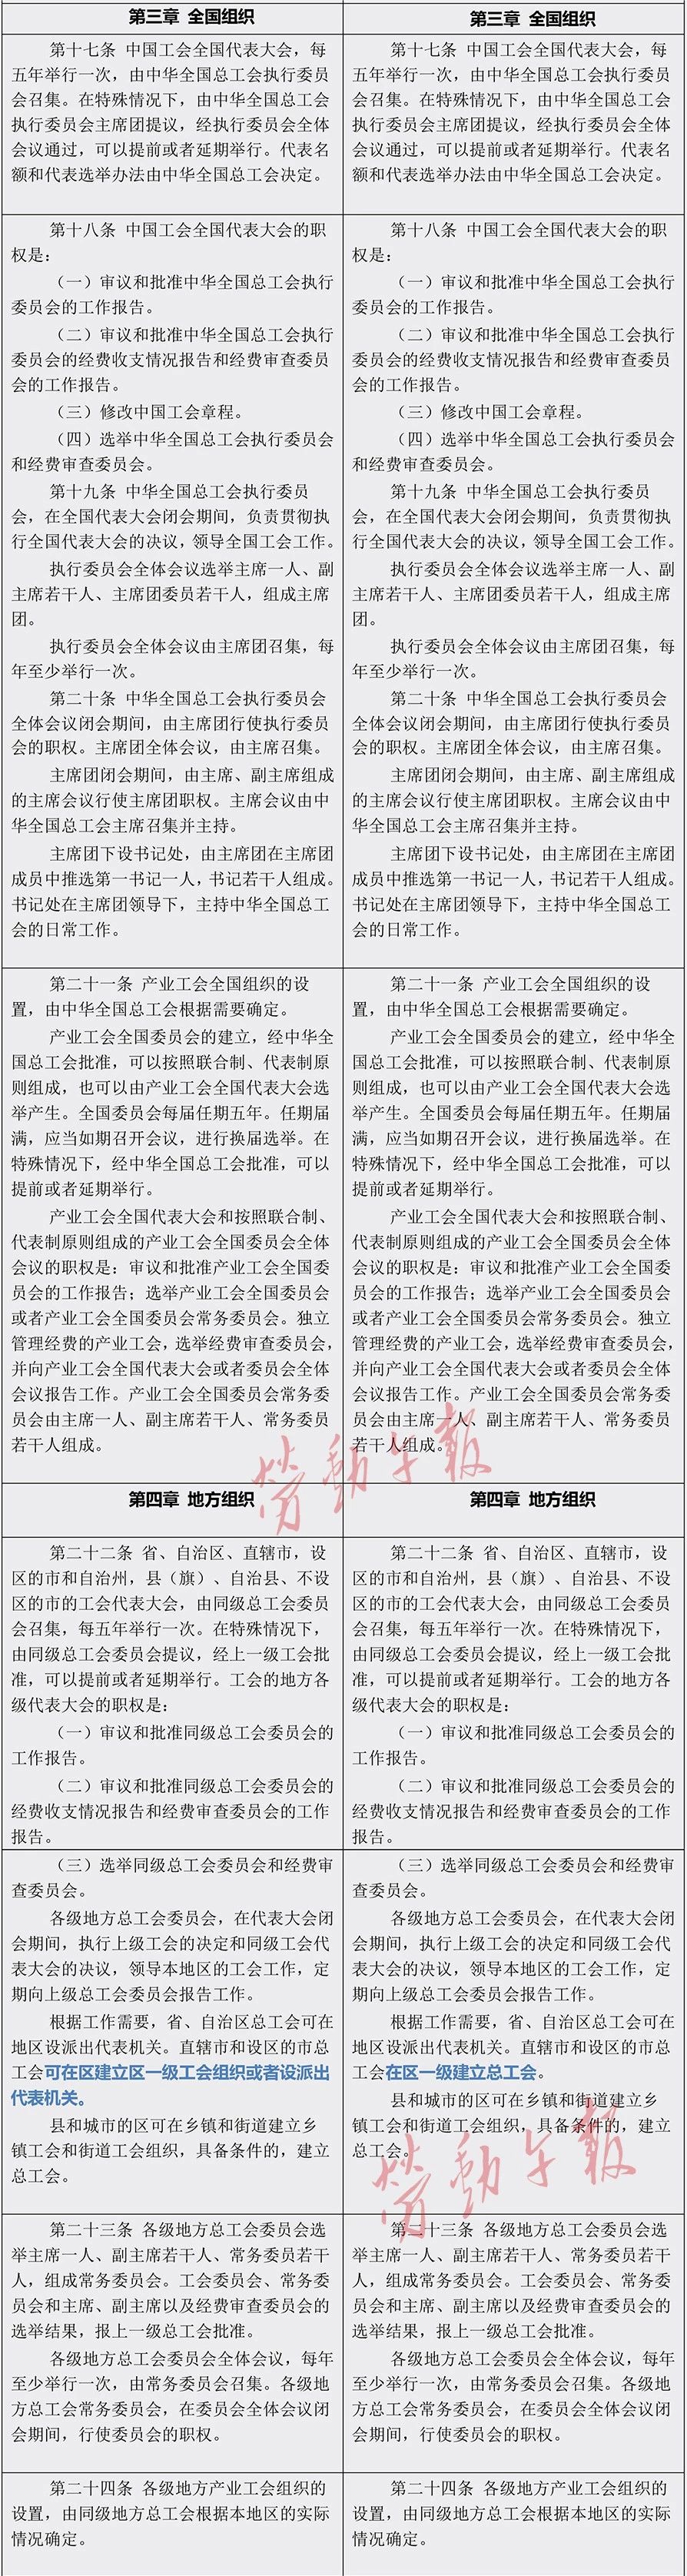 第三章 全国组织
第三章 全国组织
第十七条 中国工会全国代表大会，每
五年举行一次，由中华全国总工会执行委员
会召集。在特殊情况下，由中华全国总工会
执行委员会主席团提议，经执行委员会全体
会议通过，可以提前或者延期举行。代表名
额和代表选举办法由中华全国总工会决定。
第十七条 中国工会全国代表大会，每
五年举行一次，由中华全国总工会执行委员
会召集。在特殊情况下，由中华全国总工会
执行委员会主席团提议，经执行委员会全体
会议通过，可以提前或者延期举行。代表名
额和代表选举办法由中华全国总工会决定。
第十八条 中国工会全国代表大会的职
权是：
（一）审议和批准中华全国总工会执行
委员会的工作报告。
（二）审议和批准中华全国总工会执行
委员会的经费收支情况报告和经费审查委员
会的工作报告。
（三）修改中国工会章程。
（四）选举中华全国总工会执行委员会
和经费审查委员会。
第十九条 中华全国总工会执行委员
会，在全国代表大会闭会期间，负责贯彻执
行全国代表大会的决议，领导全国工会工作。
执行委员会全体会议选举主席一人、副
主席若干人、主席团委员若干人，组成主席
团。
执行委员会全体会议由主席团召集，每
年至少举行一次。
第二十条 中华全国总工会执行委员会
全体会议闭会期间，由主席团行使执行委员
会的职权。主席团全体会议，由主席召集。
主席团闭会期间，由主席、副主席组成
的主席会议行使主席团职权。主席会议由中
华全国总工会主席召集并主持。
主席团下设书记处，由主席团在主席团
成员中推选第一书记一人，书记若干人组成。
书记处在主席团领导下，主持中华全国总工
会的日常工作。
第十八条 中国工会全国代表大会的职
权是：
（一）审议和批准中华全国总工会执行
委员会的工作报告。
（二）审议和批准中华全国总工会执行
委员会的经费收支情况报告和经费审查委员
会的工作报告。
（三）修改中国工会章程。
（四）选举中华全国总工会执行委员会
和经费审查委员会。
第十九条 中华全国总工会执行委员
会，在全国代表大会闭会期间，负责贯彻执
行全国代表大会的决议，领导全国工会工作。
执行委员会全体会议选举主席一人、副
主席若干人、主席团委员若干人，组成主席
团。
执行委员会全体会议由主席团召集，每
年至少举行一次。
第二十条 中华全国总工会执行委员会
全体会议闭会期间，由主席团行使执行委员
会的职权。主席团全体会议，由主席召集。
主席团闭会期间，由主席、副主席组成
的主席会议行使主席团职权。主席会议由中
华全国总工会主席召集并主持。
主席团下设书记处，由主席团在主席团
成员中推选第一书记一人，书记若干人组成。
书记处在主席团领导下，主持中华全国总工
会的日常工作。
第二十一条 产业工会全国组织的设
置，由中华全国总工会根据需要确定。
产业工会全国委员会的建立，经中华全
国总工会批准，可以按照联合制、代表制原
则组成，也可以由产业工会全国代表大会选
举产生。全国委员会每届任期五年。任期届
满，应当如期召开会议，进行换届选举。在
特殊情况下，经中华全国总工会批准，可以
提前或者延期举行。
产业工会全国代表大会和按照联合制、
代表制原则组成的产业工会全国委员会全体
会议的职权是：审议和批准产业工会全国委
员会的工作报告；选举产业工会全国委员会
或者产业工会全国委员会常务委员会。独立
管理经费的产业工会，选举经费审查委员会，
并向产业工会全国代表大会或者委员会全体
会议报告工作。产业工会全国委员会常务委
员会由主席一人、副主席若干人、常务委员
若干人组成。
第二十一条 产业工会全国组织的设
置，由中华全国总工会根据需要确定。
产业工会全国委员会的建立，经中华全
国总工会批准，可以按照联合制、代表制原
则组成，也可以由产业工会全国代表大会选
举产生。全国委员会每届任期五年。任期届
满，应当如期召开会议，进行换届选举。在
特殊情况下，经中华全国总工会批准，可以
提前或者延期举行。
产业工会全国代表大会和按照联合制、
代表制原则组成的产业工会全国委员会全体
会议的职权是：审议和批准产业工会全国委
员会的工作报告；选举产业工会全国委员会
或者产业工会全国委员会常务委员会。独立
管理经费的产业工会，选举经费审查委员会，
并向产业工会全国代表大会或者委员会全体
会议报告工作。产业工会全国委员会常务委
员会由主席一人、副主席若干人、常务委员
若干人组成。
勞動午報
第四章 地方组织
第四章 地方组织
第二十二条 省、自治区、直辖市，设
区的市和自治州，县（旗）、自治县、不设
区的市的工会代表大会，由同级总工会委员
会召集，每五年举行一次。在特殊情况下，
由同级总工会委员会提议，经上一级工会批
准，可以提前或者延期举行。工会的地方各
级代表大会的职权是：
（一）审议和批准同级总工会委员会的
工作报告。
（二）审议和批准同级总工会委员会的
经费收支情况报告和经费审查委员会的工作
报告。
第二十二条 省、自治区、直辖市，设
区的市和自治州，县（旗）、自治县、不设
区的市的工会代表大会，由同级总工会委员
会召集，每五年举行一次。在特殊情况下，
由同级总工会委员会提议，经上一级工会批
准，可以提前或者延期举行。工会的地方各
级代表大会的职权是：
（一）审议和批准同级总工会委员会的
工作报告。
（二）审议和批准同级总工会委员会的
经费收支情况报告和经费审查委员会的工作
报告。
（三）选举同级总工会委员会和经费审
查委员会。
各级地方总工会委员会，在代表大会闭
会期间，执行上级工会的决定和同级工会代
表大会的决议，领导本地区的工会工作，定
期向上级总工会委员会报告工作。
根据工作需要，省、自治区总工会可在
地区设派出代表机关。直辖市和设区的市总
工会可在区建立区一级工会组织或者设派出
代表机关。
县和城市的区可在乡镇和街道建立乡
镇工会和街道工会组织，具备条件的，建立
总工会。
（三）选举同级总工会委员会和经费审
查委员会。
各级地方总工会委员会，在代表大会闭
会期间，执行上级工会的决定和同级工会代
表大会的决议，领导本地区的工会工作，定
期向上级总工会委员会报告工作。
根据工作需要，省、自治区总工会可在
地区设派出代表机关。直辖市和设区的市总
工会在区一级建立总工会。
县和城市的区可在乡镇和街道建立乡
镇工会和街道工会组织，具备条件的，建立
总工会。
勞動午報
第二十三条 各级地方总工会委员会选
举主席一人、副主席若干人、常务委员若干
人，组成常务委员会。工会委员会、常务委
员会和主席、副主席以及经费审查委员会的
选举结果，报上一级总工会批准。
各级地方总工会委员会全体会议，每年
至少举行一次，由常务委员会召集。各级地
方总工会常务委员会，在委员会全体会议闭
会期间，行使委员会的职权。
第二十三条 各级地方总工会委员会选
举主席一人、副主席若干人、常务委员若干
人，组成常务委员会。工会委员会、常务委
员会和主席、副主席以及经费审查委员会的
选举结果，报上一级总工会批准。
各级地方总工会委员会全体会议，每年
至少举行一次，由常务委员会召集。各级地
方总工会常务委员会，在委员会全体会议闭
会期间，行使委员会的职权。
第二十四条 各级地方产业工会组织的
设置，由同级地方总工会根据本地区的实际
情况确定。
第二十四条 各级地方产业工会组织的
设置，由同级地方总工会根据本地区的实际
情况确定。